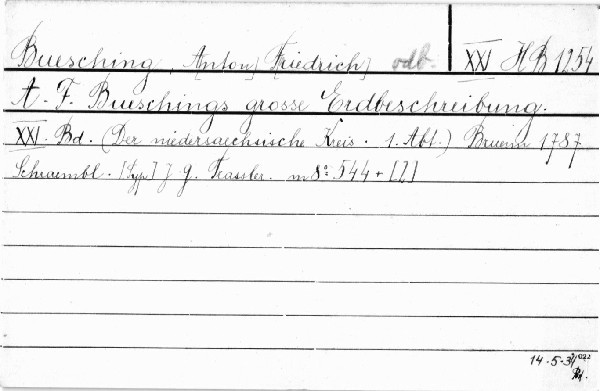 Buesching, Anton Friedrich odb. XXI HB 1254
A. F. Bueschings grosse Erdbeschreibung.
XXI. Bd. (Der niedersaechsische Kreis. 1. Abt.) Bruenn 1787
Schraembl. [typ] J. G. Trassler. m8° 544 + [7]
14-5-34